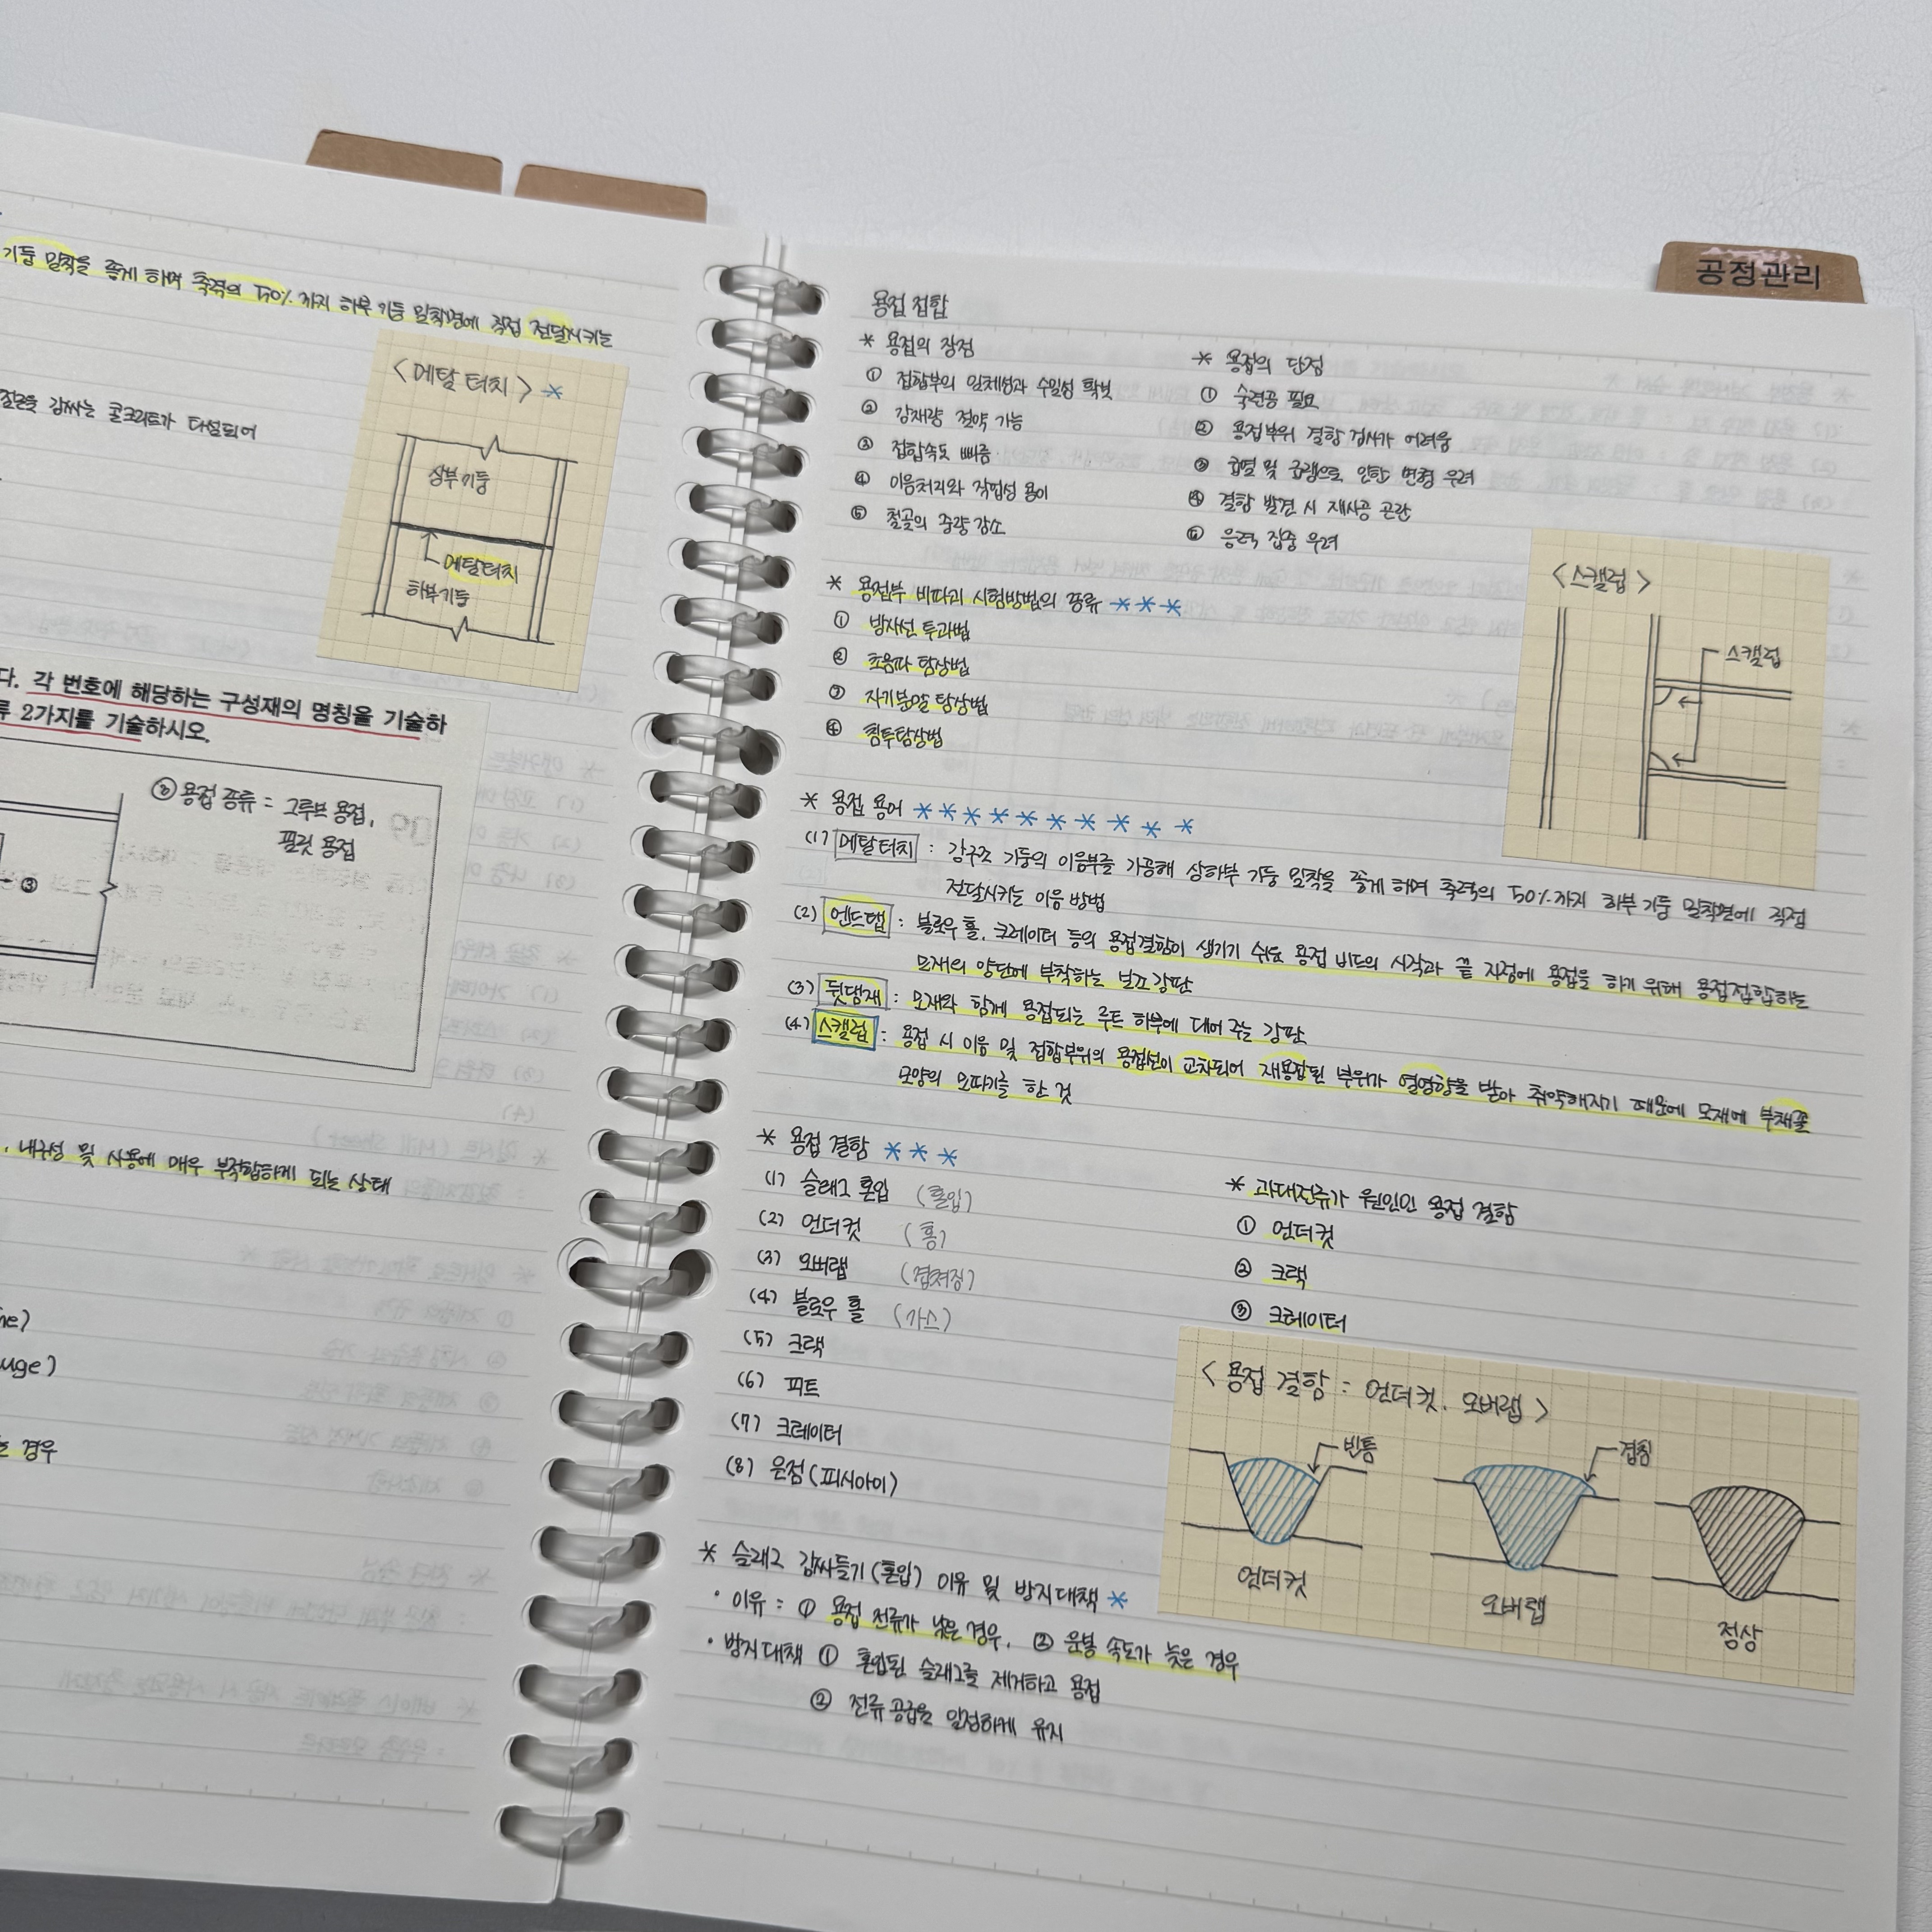 기둥 밀착을 좋게 하며 축력의 50%까지 하부 기둥 밀착면에 직접 전달시키는
<메탈 터치> *
상부기둥
메탈터치
하부기둥
감싸는 콘크리트가 타설되어
다. 각 번호에 해당하는 구성재의 명칭을 기술하
류 2가지를 기술하시오.
③ 용접 종류 = 그루브 용접,
필릿 용접
③
, 내구성 및 사용에 매우 부적합하게 되는 상태
ne)
uge)
경우
공정관리
용접 접합
* 용접의 장점
① 접합부의 일체성과 수밀성 확보
② 강재량 절약 가능
③ 접합속도 빠름
④ 이음처리와 작업성 용이
⑤ 철골의 중량 감소
* 용접의 단점
① 숙련공 필요
② 용접부위 결함 검사가 어려움
③ 급열 및 급랭으로 인한 변형 우려
④ 결함 발견 시 재시공 곤란
⑤ 응력 집중 우려
* 용접부 비파괴 시험방법의 종류 ***
① 방사선 투과법
② 초음파 탐상법
③ 자기분말 탐상법
④ 침투탐상법
<스캘럽>
스캘럽
* 용접 용어 *********
(1) 메탈터치 : 강구조 기둥의 이음부를 가공해 상하부 기둥 밀착을 좋게 하며 축력의 50%까지 하부 기둥 밀착면에 직접
전달시키는 이음 방법
(2) 엔드탭 : 블로우 홀, 크레이터 등의 용접결함이 생기기 쉬운 용접 비드의 시작과 끝 지점에 용접을 하기 위해 용접접합하는
모재의 양단에 부착하는 보조 강판
(3) 뒷댐재 : 모재와 함께 용접되는 루트 하부에 대어 주는 강판
(4) 스캘럽 : 용접 시 이음 및 접합부위의 용접선이 교차되어 재용접된 부위가 열영향을 받아 취약해지기 때문에 모재에 부채꼴
모양의 모따기를 한 것
* 용접 결함 ***
(1) 슬래그 혼입 (혼입)
(2) 언더컷 (홈)
(3) 오버랩 (겹쳐짐)
(4) 블로우 홀 (가스)
(5) 크랙
(6) 피트
(7) 크레이터
(8) 은점(피시아이)
* 과대전류가 원인인 용접 결함
① 언더컷
② 크랙
③ 크레이터
<용접 결함 : 언더컷, 오버랩>
빈틈
겹침
언더컷
오버랩
정상
* 슬래그 감싸들기(혼입) 이유 및 방지대책 *
· 이유 : ① 용접 전류가 낮은 경우, ② 운봉 속도가 늦은 경우
· 방지대책 ① 혼입된 슬래그를 제거하고 용접
② 전류 공급을 일정하게 유지